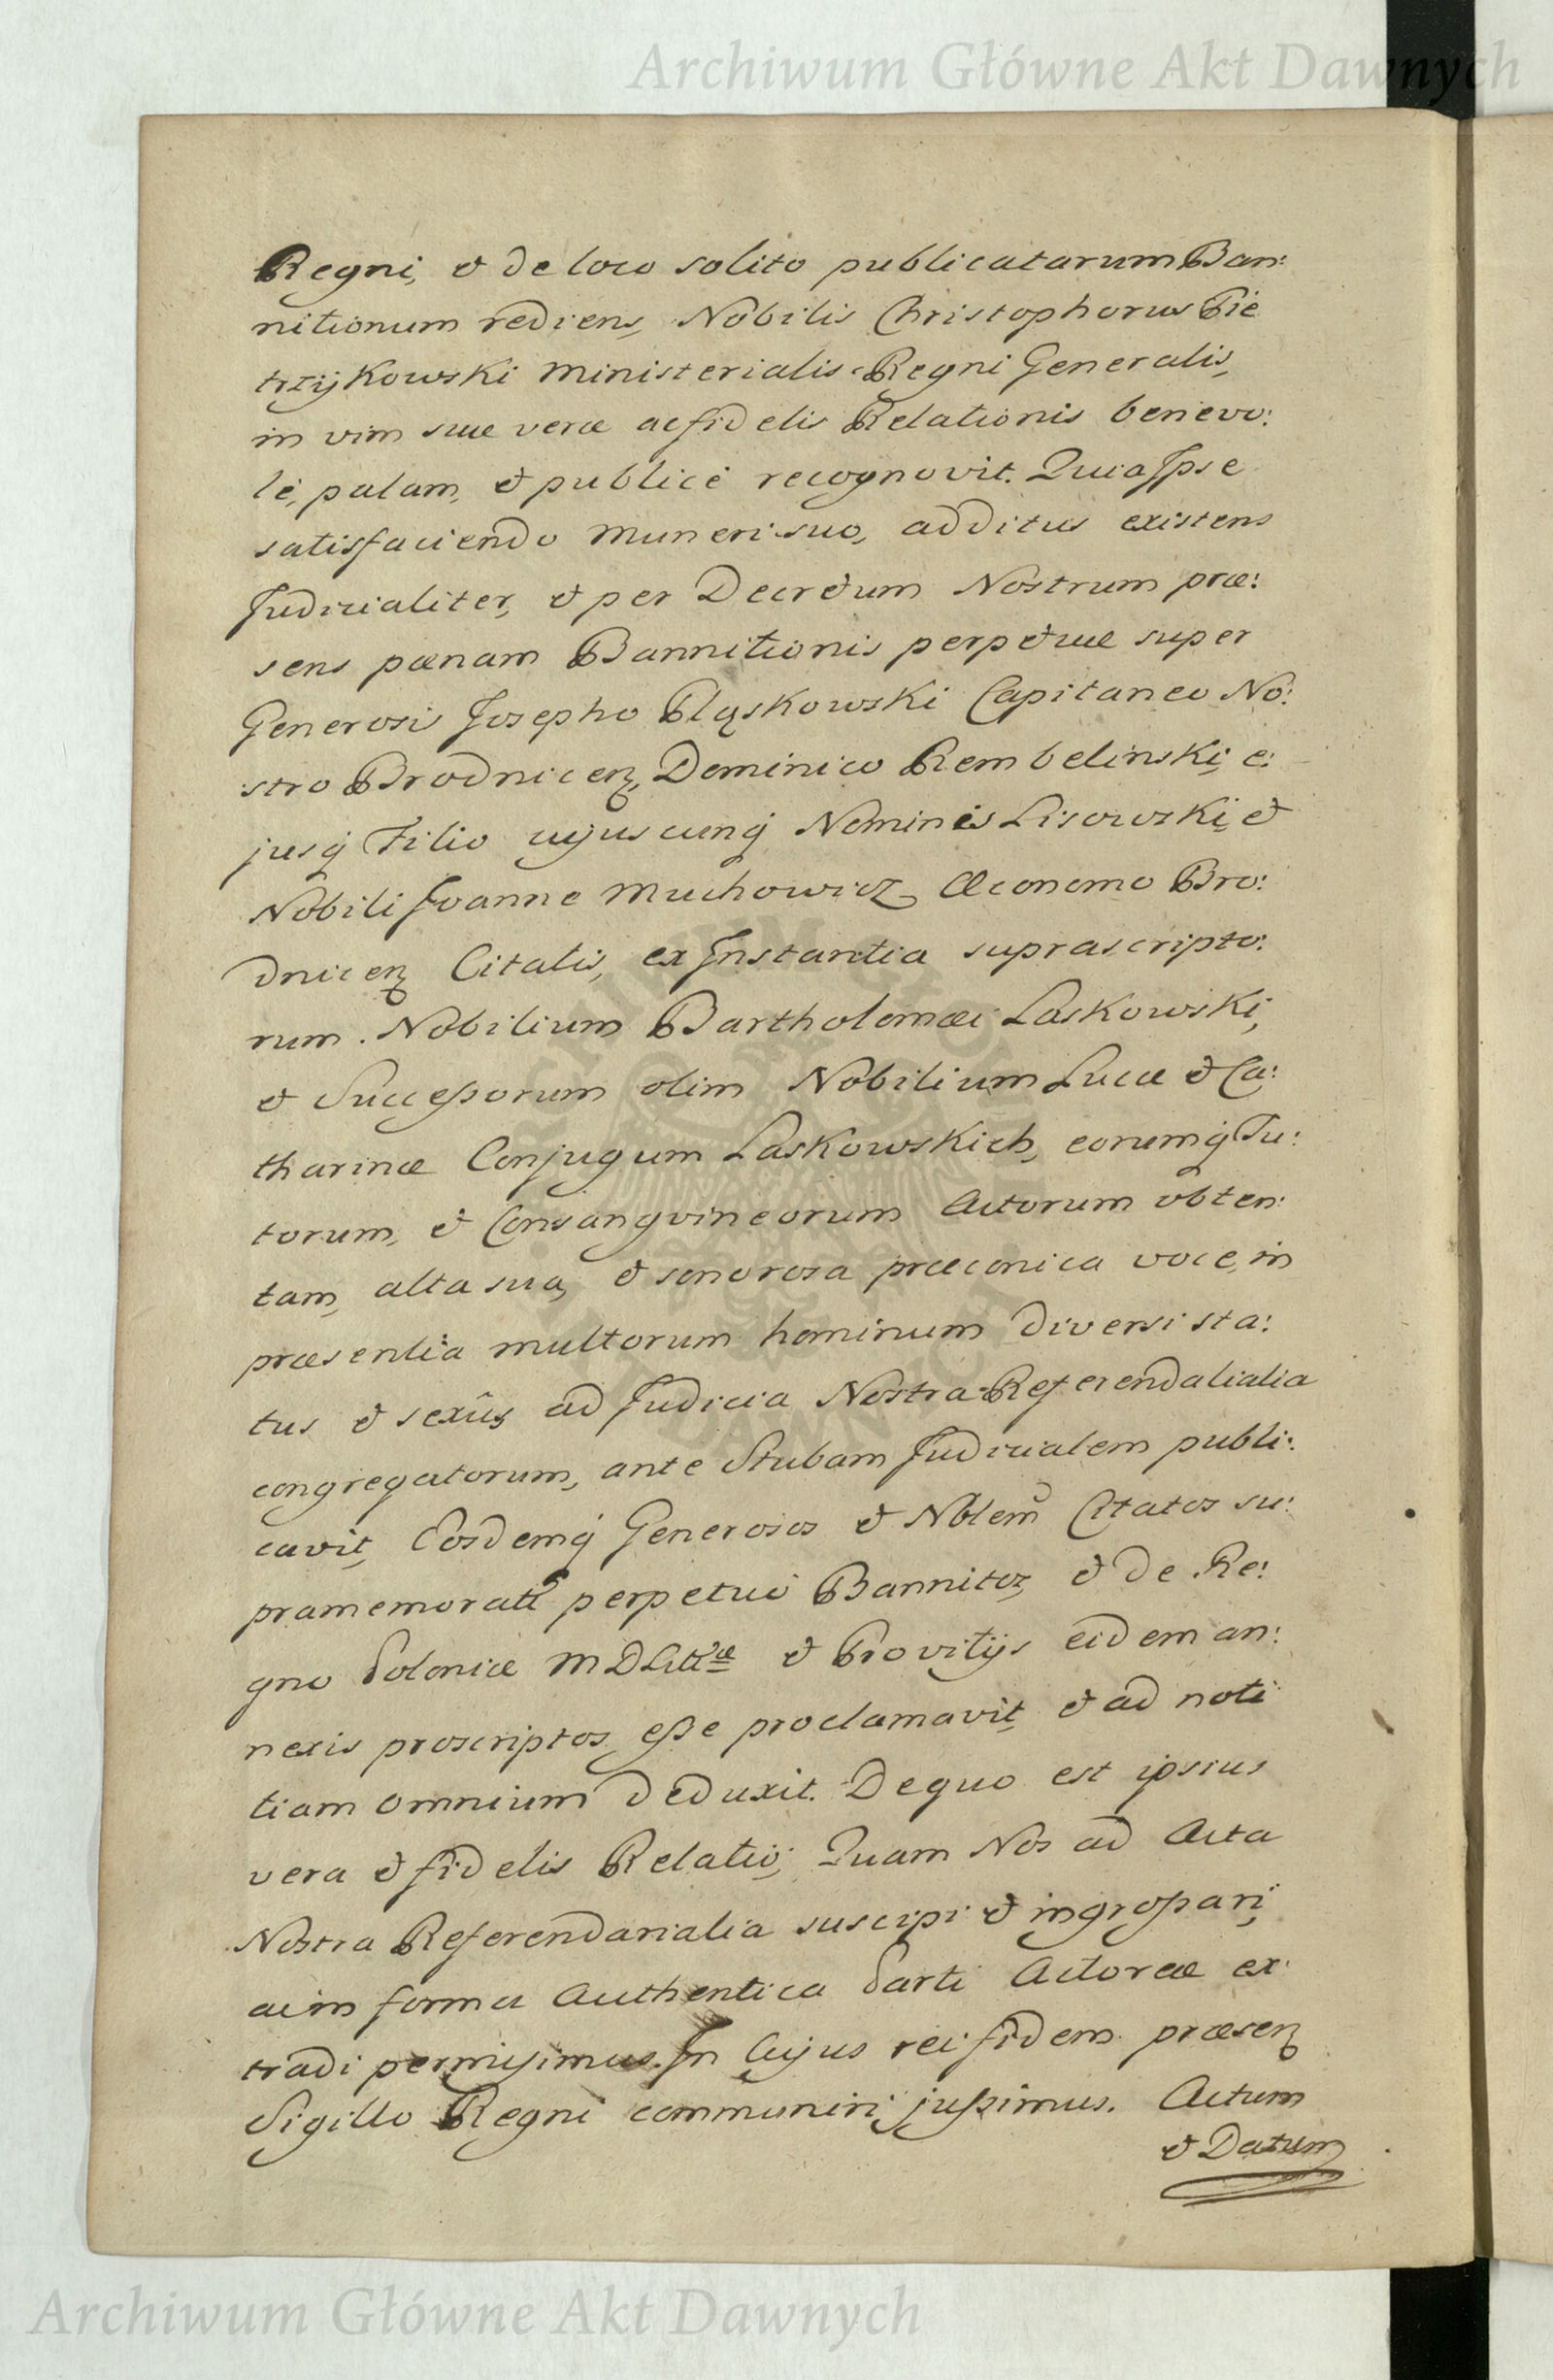 Archiwum Główne Akt Dawnych
Regni, & de loco solito publicatarum Ban:
nitionum rediens, Nobilis Christophorus Pie
trzykowski Ministerialis Regni Generalis,
in vim suæ veræ ac fidelis Relationis benevo:
lè, palam, & publicè recognovit. Quia Ipse
satisfaciendo Muneri suo, additus existens
Judicialiter, & per Decretum Nostrum præ:
sens pænam Bannitionis perpetuæ super
Generosis Josepho Pląskowski Capitaneo No:
stro Brodnicen, Dominico Rembelinski, e:
jusq Filio cujuscunq Nominis Lisowski, &
Nobili Joanne Muchowicz Œconomo Bro:
dnicen Citatis, ex Instantia suprascripto:
rum. Nobilium Bartholomæi Laskowski,
& Successorum olim Nobilium Lucæ & Ca:
tharinæ Conjugum Laskowskich, eorumq Tu:
torum, & Consangvineorum Actorum obten:
tam, alta sua, & sonorosa præconica voce, in
præsentia multorum hominum diversi sta:
tus & sexûs, ad Judicia Nostra Referendalialia
congregatorum, ante Stubam Judicialem publi:
cavit, Eosdemq Generosos & Nblem Citatos su:
pramemorat perpetuò Bannitos, & de Re:
gno Poloniæ M D Litt æ & Provitijs eidem an:
nexis proscriptos esse proclamavit, & ad noti
tiam omnium deduxit. De quo est ipsius
vera & fidelis Relatio, Quam Nos ad Acta
Nostra Referendarialia suscipi & ingrossari,
ac in forma Authentica Parti Actoreæ ex:
tradi permisimus. In Cujus rei fidem præsen
Sigillo Regni communiri jussimus. Actum
& Datum
Archiwum Główne Akt Dawnych